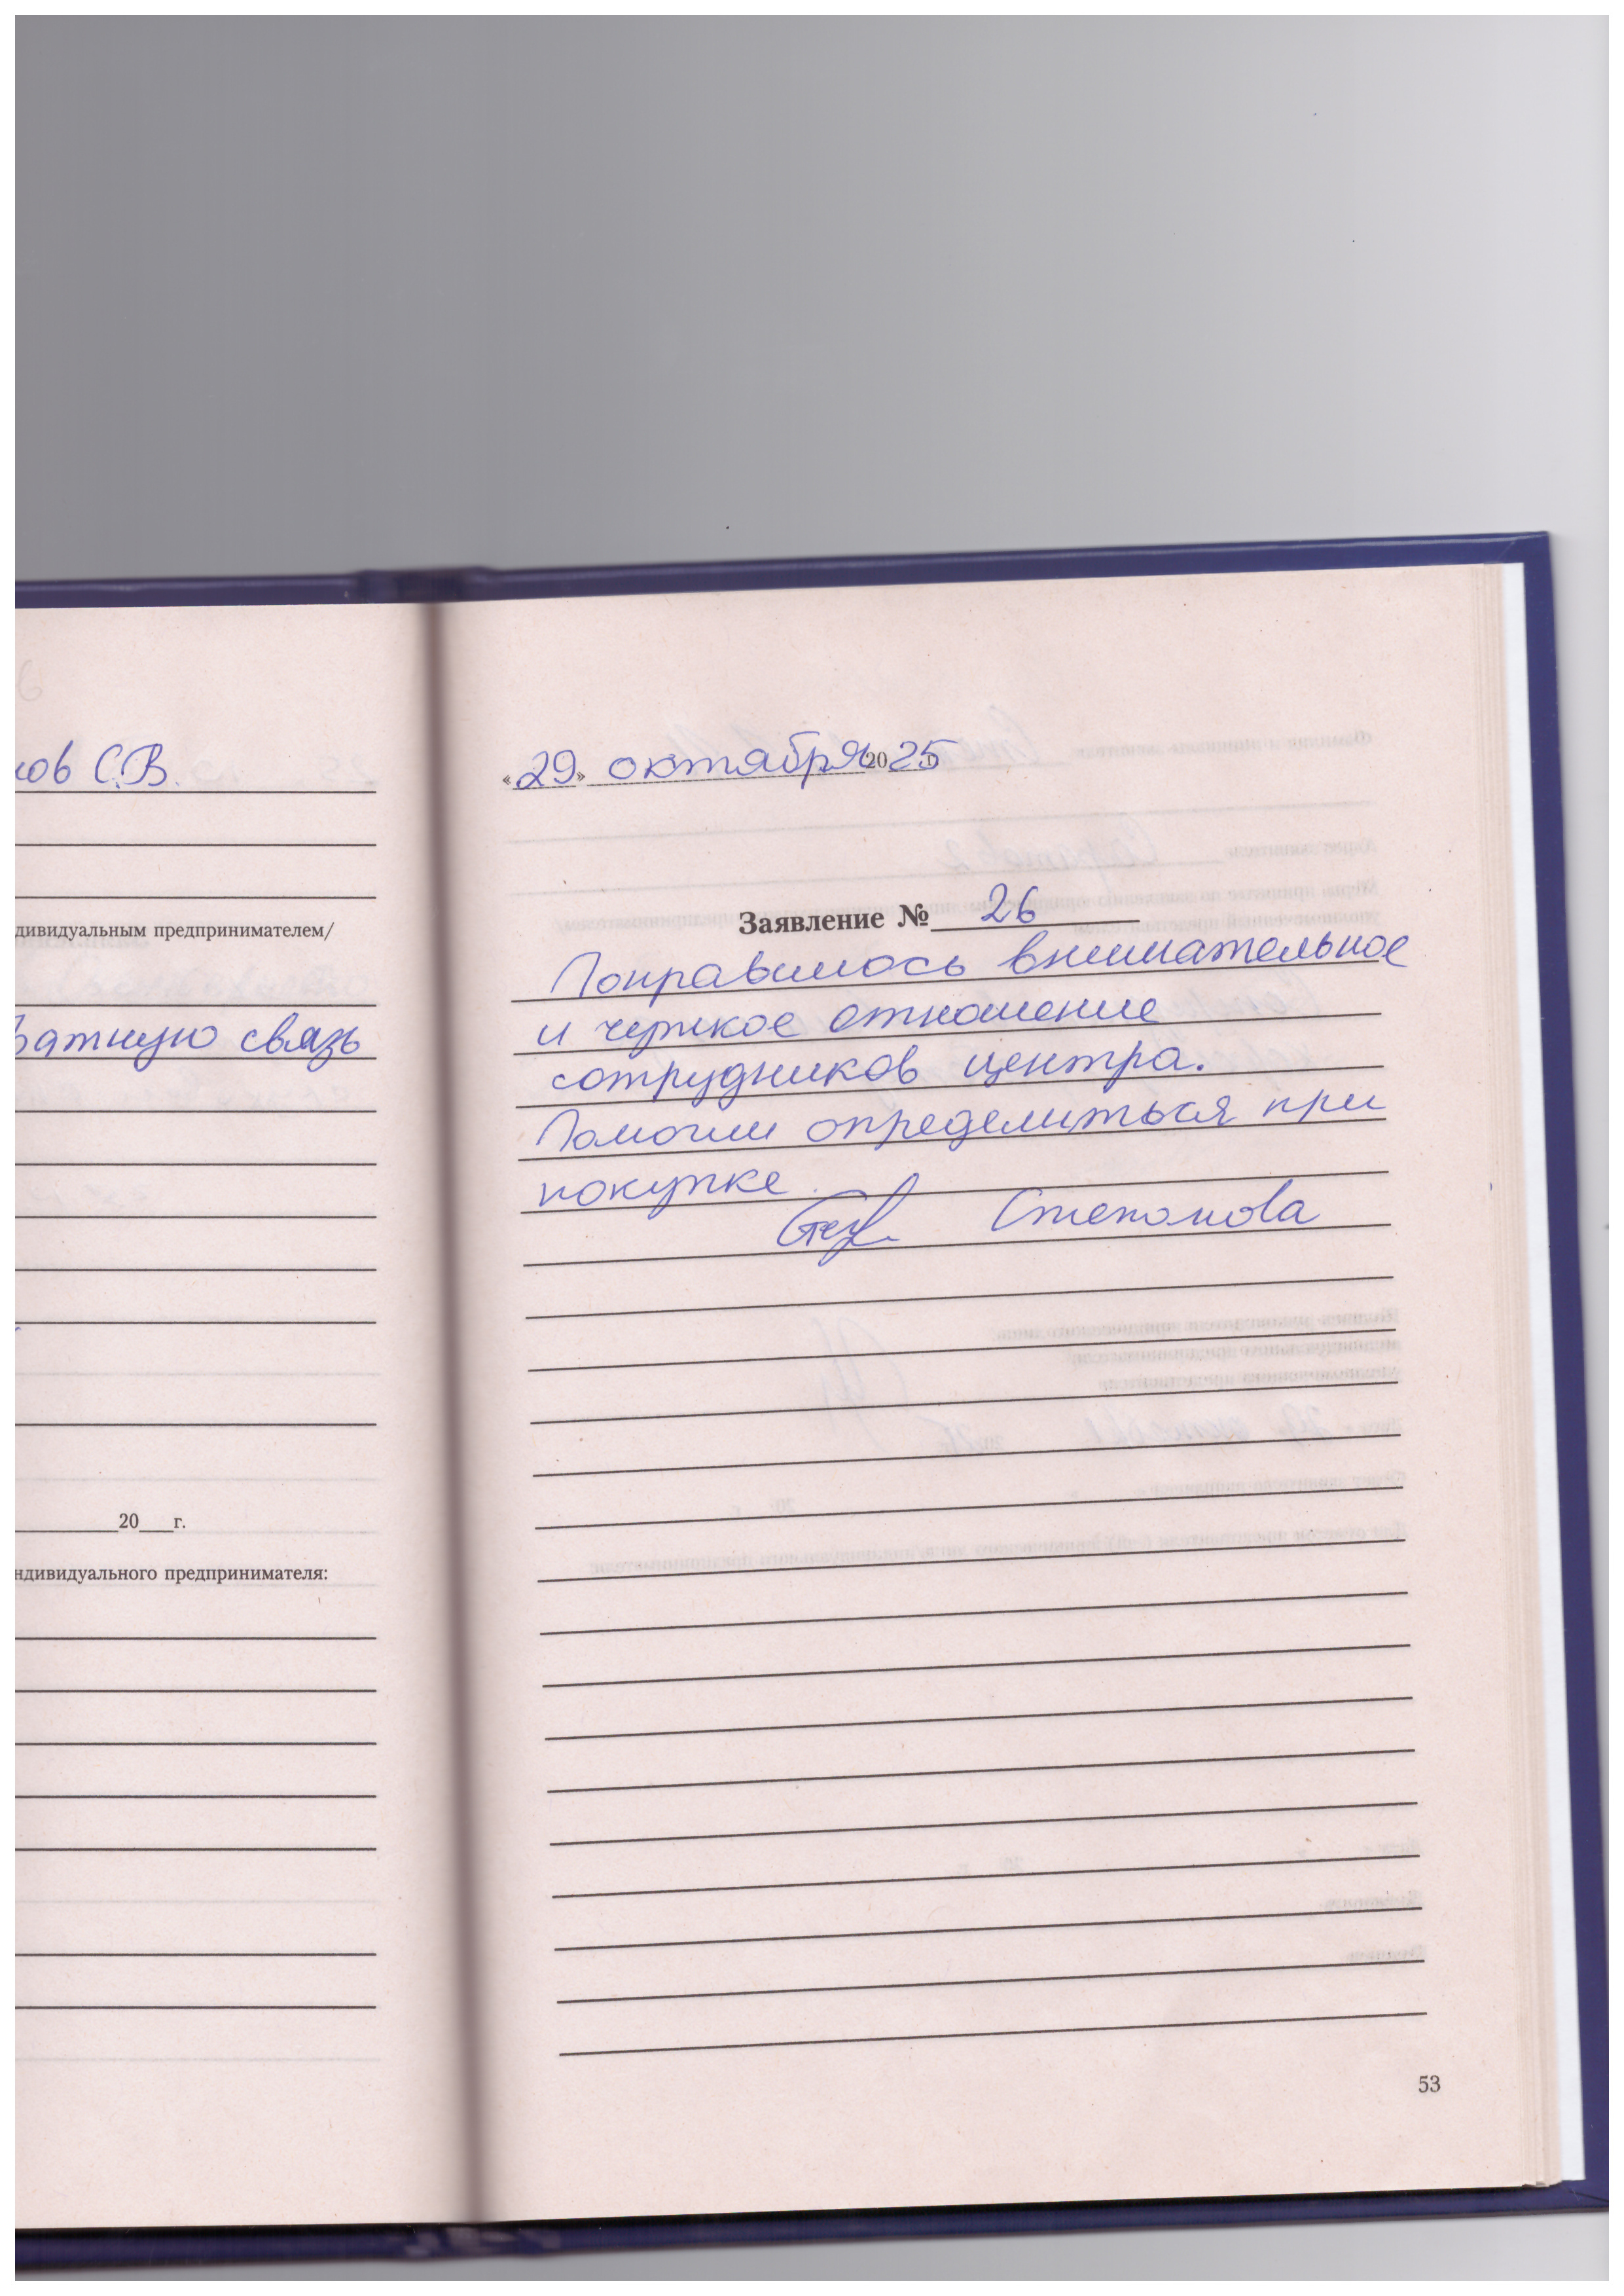 ков С.В.
дивидуальным предпринимателем/
ратную связь
20 г.
ндивидуального предпринимателя:
«29» октября 2025
Заявление № 26
Понравилось внимательное
и чуткое отношение
сотрудников центра.
Помогли определиться при
покупке.
Степанова
53